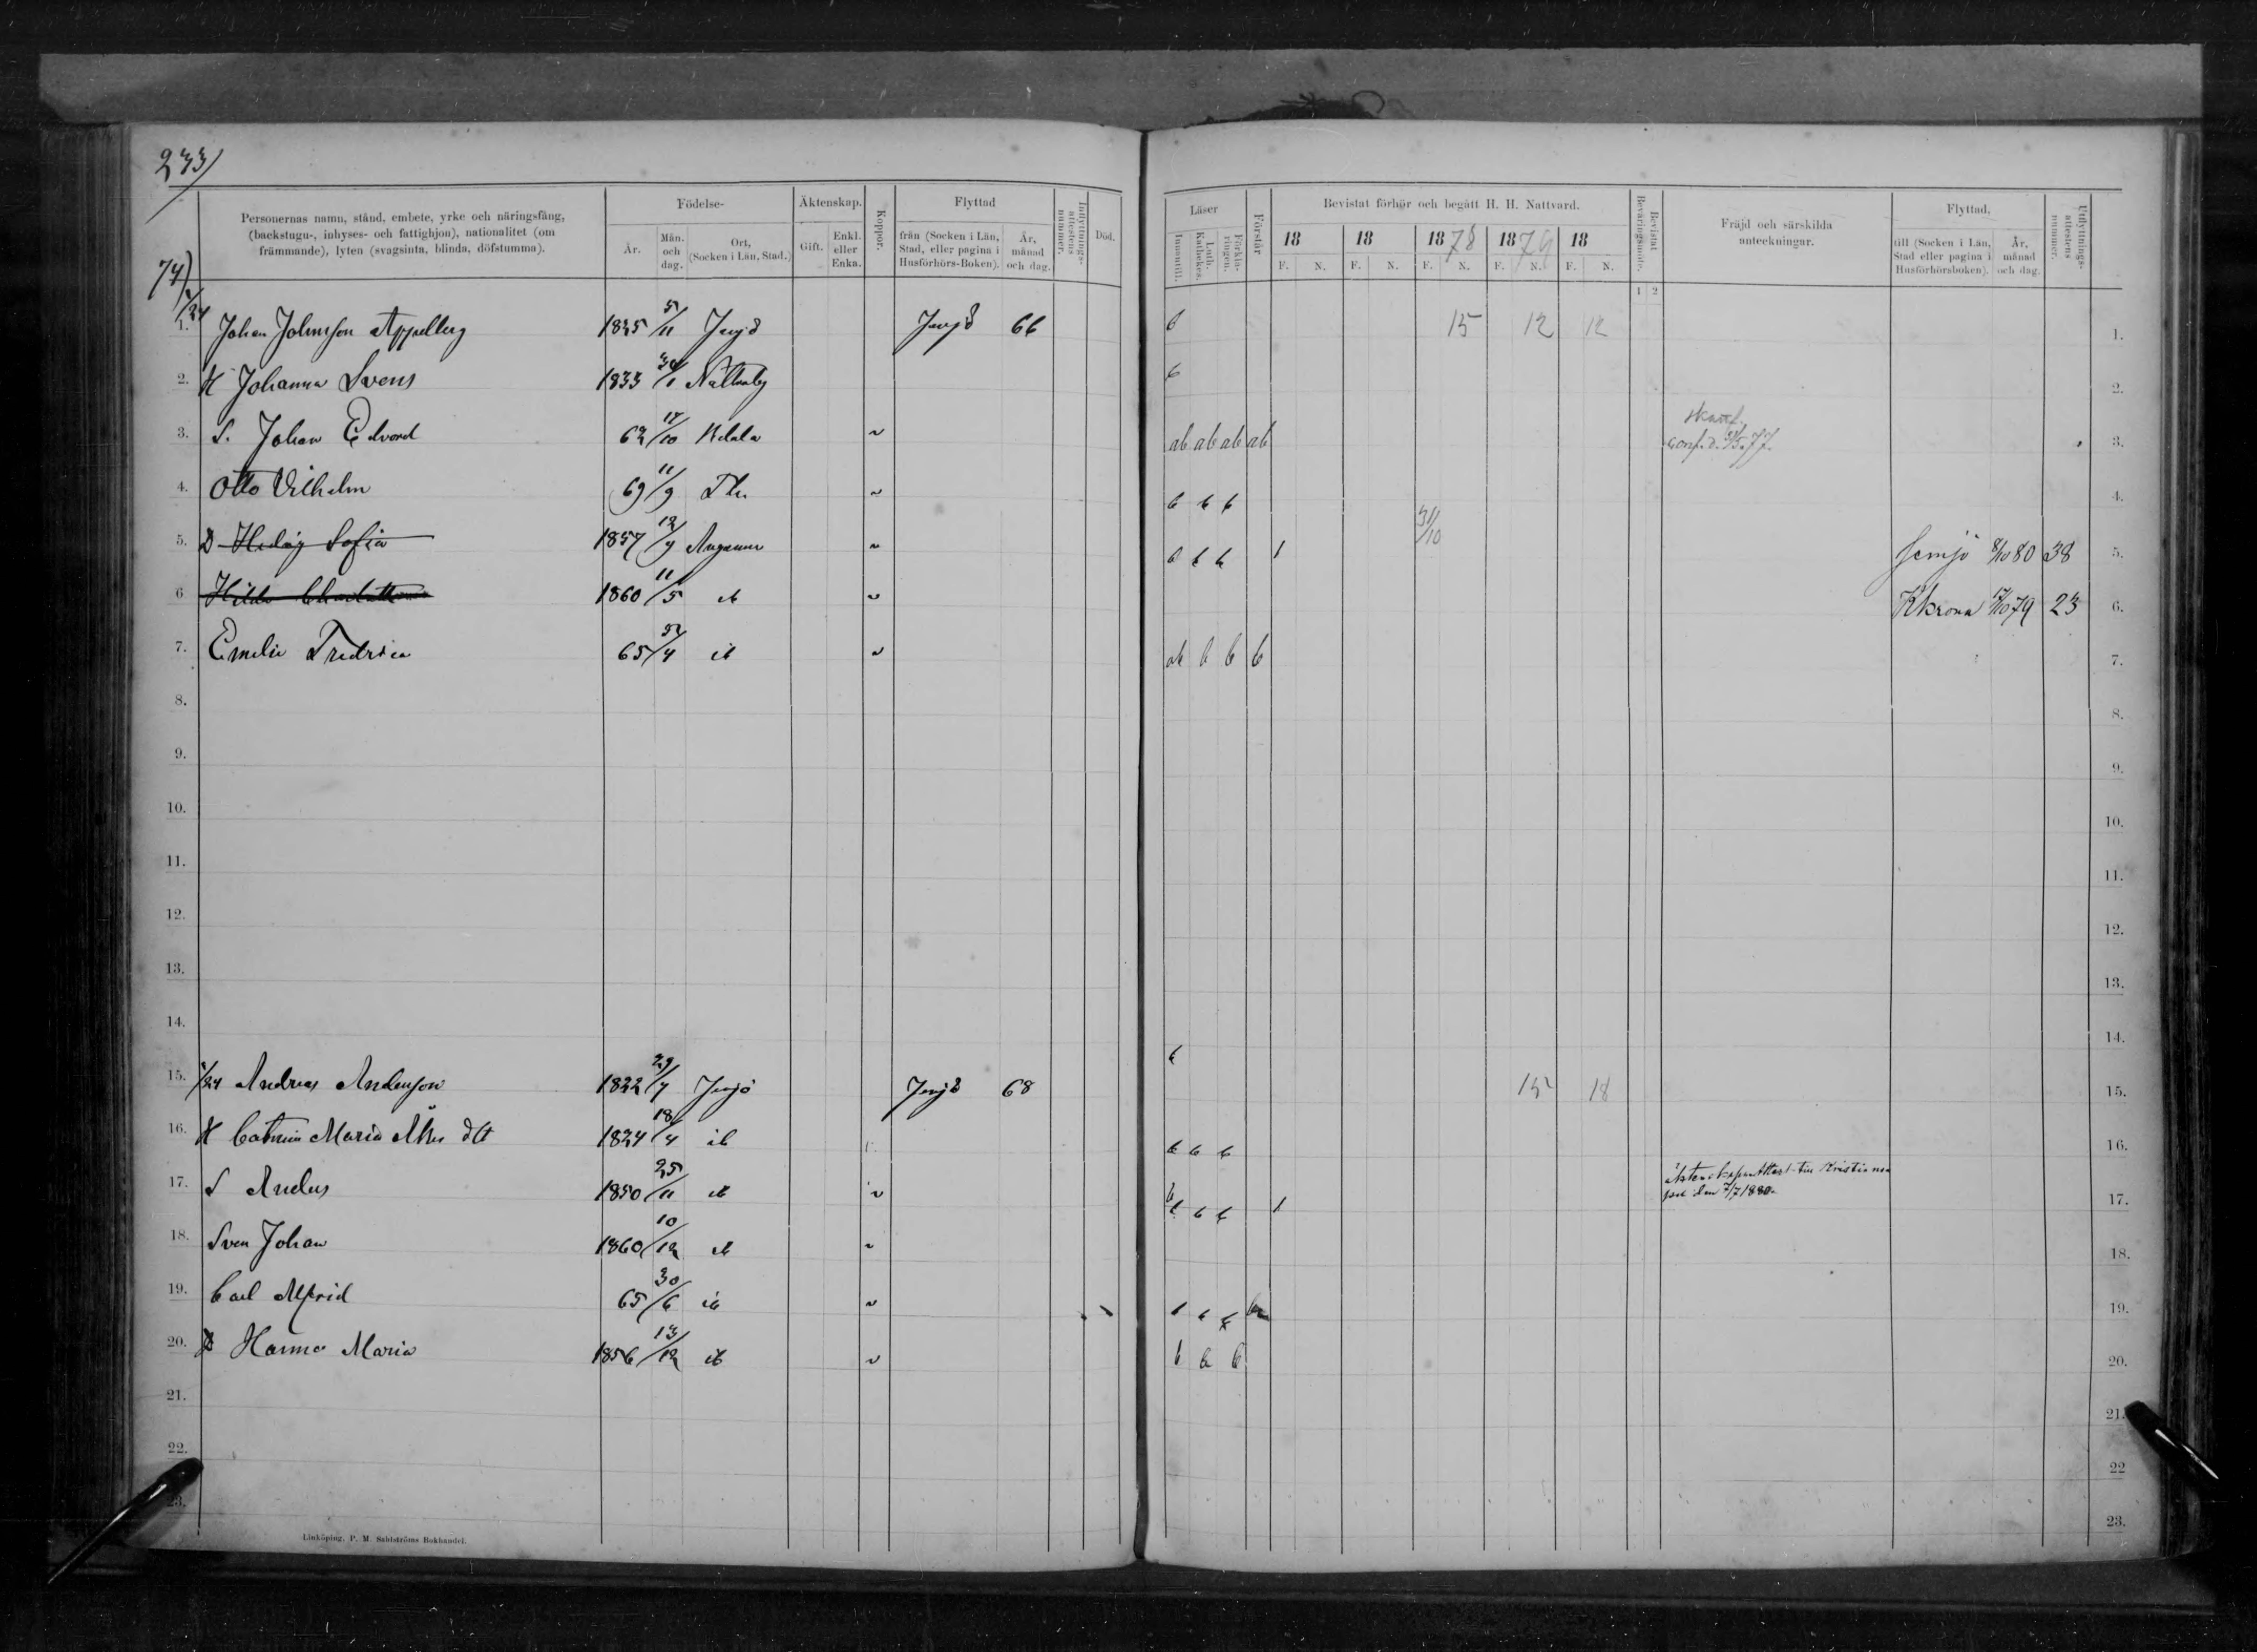 233
74)
Personernas namn, stånd, embete, yrke och näringsfång, (backstugu-, inhyses- och fattighjon), nationalitet (om främmande), lyten (svagsinta, blinda, döfstumma).
Födelse-
År.
Mån. och dag.
Ort, (Socken i Län, Stad.)
Äktenskap.
Gift.
Enkl. eller Enka.
Koppor.
Flyttad
från (Socken i Län, Stad, eller pagina i Husförhörs-Boken).
År, månad och dag.
Inflyttnings-attestens nummer.
Död.
Läser
Innantill.
Luth. Kathekes.
Förklaringen.
Förstår
Bevistat förhör och begått H. H. Nattvard.
18 18 1878 1879 18
F. N. F. N. F. N. F. N. F. N.
Bevistat Beväringsmöte.
1 2
Fräjd och särskilda anteckningar.
Flyttad,
till (Socken i Län, Stad eller pagina i Husförhörsboken).
År, månad och dag.
Utflyttnings-attestens nummer.
1. Johan Johnsson Appelberg 1825 5/11 Jemjö Jemjö 66 b 15 12 12 1.
2. H Johanna Svens 1833 Nättraby b 2.
3. S. Johan Edvard 62 17/10 ab ab ab ab conf. 77 3.
4. Otto Vilhelm 69 11/9 b b b 4.
5. D Hedvig Sofia 1857 12/9 b b b 1 31/10 Jemjö 8/10 80 38 5.
6 Hilda Charlotta 1860 11/5 ib Kkrona 79 23 6.
7. Emelie Fredrica 65 /4 ib ab b b b 7.
8. 8.
9. 9.
10. 10.
11. 11.
12. 12.
13. 13.
14. 14.
15. 1/24 Andreas Andersson 1822 29/7 Jemjö Jemjö 68 b 15 18 15.
16. H Catrina Maria Åkes dtt 1824 18/4 ib b b b 16.
17. S Anders 1850 25/11 ib b b b 1 den 7/7 1880. 17.
18. Sven Johan 1860 10/12 ib 18.
19. Carl Alfrid 65 30/6 ib b b b 19.
20. D Hanna Maria 1856 13/12 ib b b b 20.
21. 21.
22. 22
23. 23.
Linköping, P. M. Sahlströms Bokhandel.